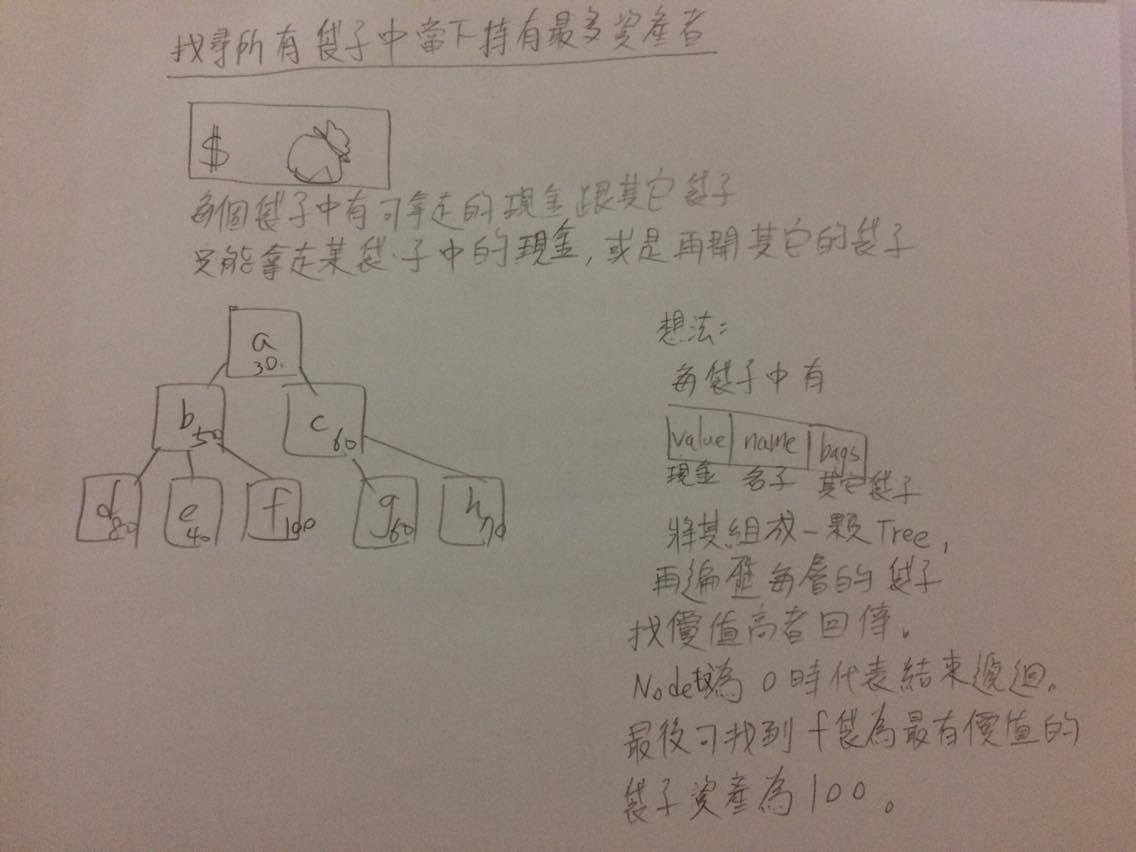 找尋所有袋子中當下持有最多資產者
$
每個袋子中有可拿走的現金跟其它袋子
只能拿走某袋子中的現金,或是再開其它的袋子
a
30
b 50
c 60
d 80
e 40
f 100
g 60
h 70
想法:
每袋子中有
value name bags
現金 名子 其它袋子
將其組成一顆Tree,
再遍歷每層的袋子
找價值高者回傳。
Node數為0時代表結束遞迴。
最後可找到f袋為最有價值的
袋子資產為100。